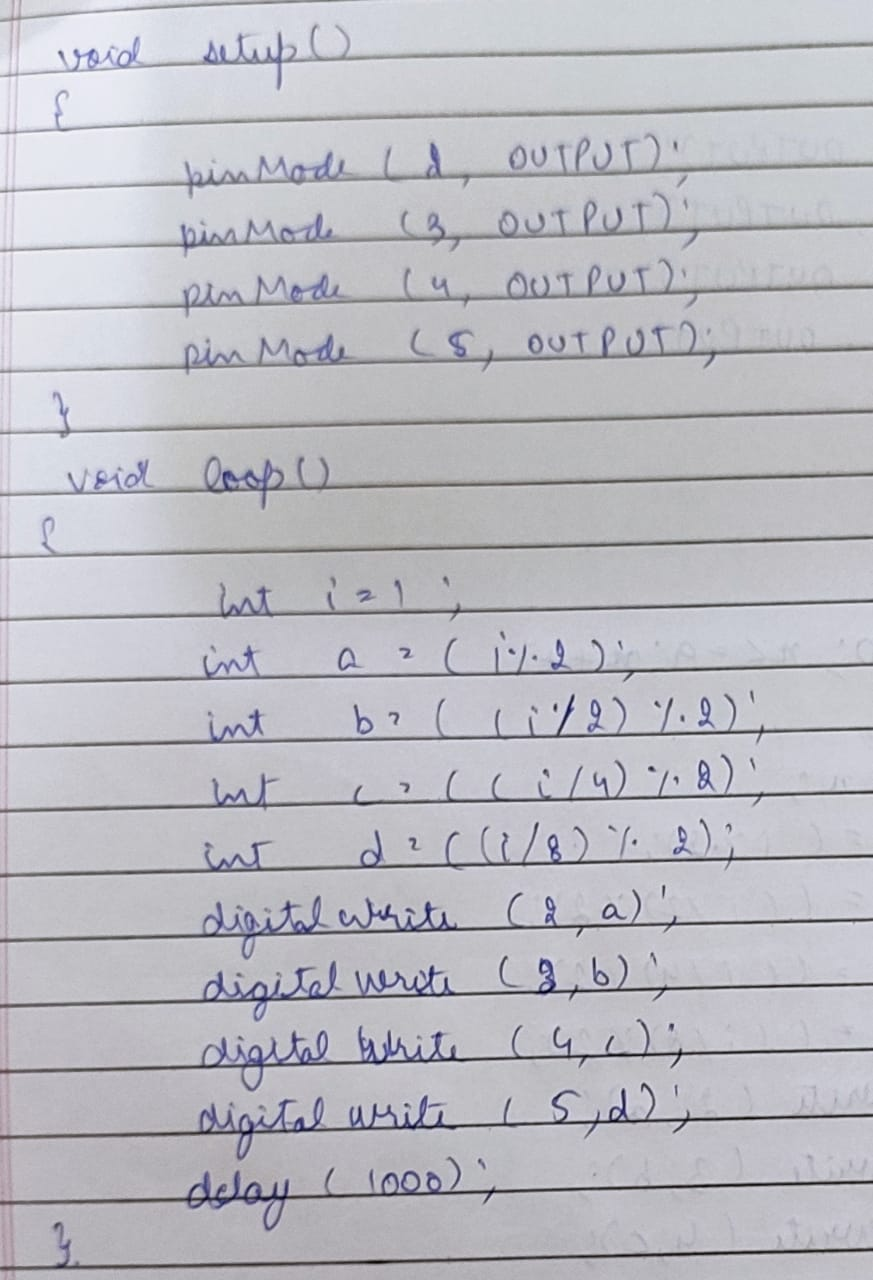 void setup()
{
pinMode (2, OUTPUT);
pinMode (3, OUTPUT);
pinMode (4, OUTPUT);
pinMode (5, OUTPUT);
}
void loop()
{
int i = 1 ;
int a = ( i % 2 );
int b = ( ( i % 2 ) % 2 );
int c = ( ( i / 4 ) % 2 );
int d = ( ( i / 8 ) % 2 );
digital write ( 2, a );
digital write ( 3, b );
digital write ( 4, c );
digital write ( 5, d );
delay ( 1000 );
}